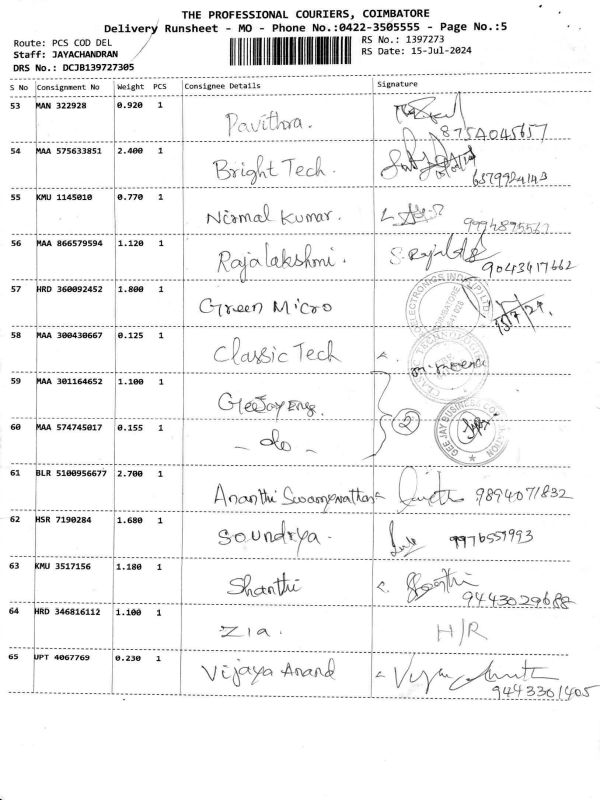 THE PROFESSIONAL COURIERS, COIMBATORE
Delivery Runsheet - MO - Phone No.:0422-3505555 - Page No.:5
Route: PCS COD DEL
RS No.: 1397273
Staff: JAYACHANDRAN
RS Date: 15-Jul-2024
DRS No.: DCJB139727305
S No Consignment No Weight PCS Consignee Details Signature
53 MAN 322928 0.920 1
Pavithra. 875A045657
54 MAA 575633851 2.400 1
Bright Tech. 6379924143
55 KMU 1145010 0.770 1
Nirmal Kumar. 9994895567
56 MAA 866579594 1.120 1
Rajalakshmi. 9043417662
57 HRD 360092452 1.800 1
Green Micro 15/7/24.
58 MAA 300430667 0.125 1
Classic Tech
59 MAA 301164652 1.100 1
GeeJay Eng.
2
60 MAA 574745017 0.155 1
- do -
61 BLR 5100956677 2.700 1
Ananthi 9894071832
62 HSR 7190284 1.680 1
Soundrya. 9976551993
63 KMU 3517156 1.180 1
Shanthi 9443029688
64 HRD 346816112 1.100 1
Zia. H/R
65 UPT 4067769 0.230 1
Vijaya Anand
9443301405